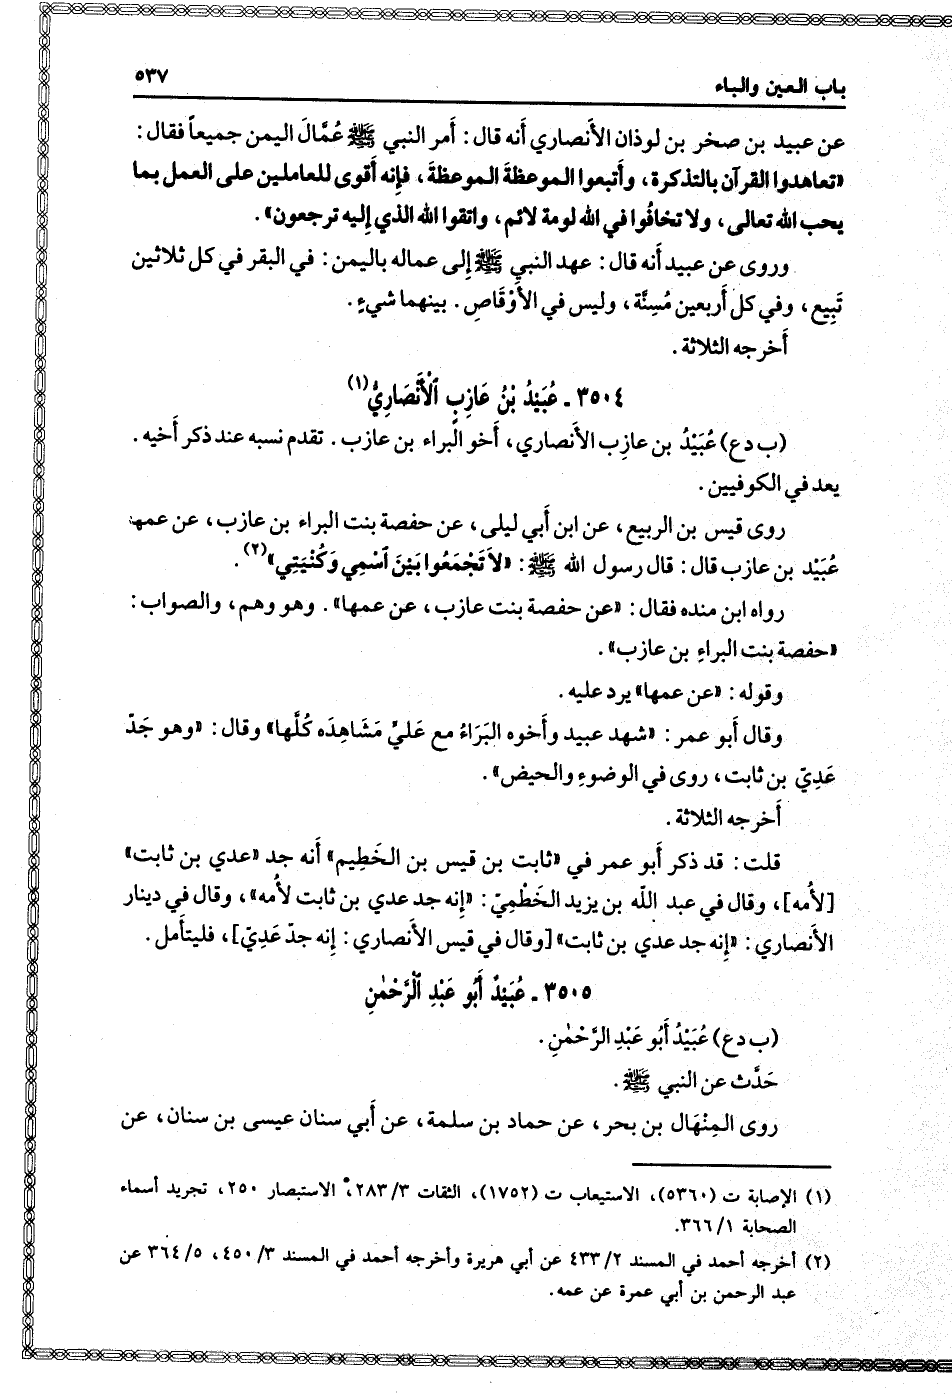 باب العين والباء ٥٣٧
عن عبيد بن صخر بن لوذان الأنصاري أنه قال: أمر النبي ﷺ عُمَّالَ اليمن جميعاً فقال:
«تعاهدوا القرآن بالتذكرة، وأتبعوا الموعظةَ الموعظةَ، فإنه أقوى للعاملين على العمل بما
يحب الله تعالى، ولا تخافُوا في الله لومة لائم، واتقوا الله الذي إليه ترجعون».
وروى عن عبيد أنه قال: عهد النبي ﷺ إلى عماله باليمن: في البقر في كل ثلاثين
تَبِيع، وفي كل أربعين مُسِنَّة، وليس في الأَوْقَاصِ. بينهما شيءٍ.
أخرجه الثلاثة.
٣٥٠٤ ـ عُبَيْدُ بْنُ عَازِبٍ ٱلْأَنْصَارِيُّ(١)
(ب د ع) عُبَيْدُ بن عازِب الأنصاري، أخو البراء بن عازب. تقدم نسبه عند ذكر أخيه.
يعد في الكوفيين.
روى قيس بن الربيع، عن ابن أبي ليلى، عن حفصة بنت البراء بن عازب، عن عمها
عُبَيْد بن عازب قال: قال رسول الله ﷺ: «لاَ تَجْمَعُوا بَيْنَ ٱسْمِي وَكُنْيَتِي»(٢).
رواه ابن منده فقال: «عن حفصة بنت عازب، عن عمها». وهو وهم، والصواب:
«حفصة بنت البراءِ بن عازب».
وقوله: «عن عمها» يرد عليه.
وقال أبو عمر: «شهد عبيد وأخوه البَرَاءُ مع عَليّ مَشَاهِدَه كُلَّها» وقال: «وهو جَدّ
عَدِيّ بن ثابت، روى في الوضوءِ والحيض».
أخرجه الثلاثة.
قلت: قد ذكر أبو عمر في «ثابت بن قيس بن الخَطِيم» أنه جد «عدي بن ثابت»
[لأُمه]، وقال في عبد اللّه بن يزيد الخَطْمِيّ: «إنه جد عدي بن ثابت لأمه»، وقال في دينار
الأنصاري: «إنه جد عدي بن ثابت» [وقال في قيس الأنصاري: إنه جدّ عَدِيّ]، فليتأمل.
٣٥٠٥ ـ عُبَيْدٌ أَبُو عَبْدِ ٱلْرَّحْمٰنِ
(ب د ع) عُبَيْدُ أَبُو عَبْدِ الرَّحْمٰنِ.
حَدَّث عن النبي ﷺ.
روى المِنْهَال بن بحر، عن حماد بن سلمة، عن أبي سنان عيسى بن سنان، عن
(١) الإصابة ت (٥٣٦٠)، الاستيعاب ت (١٧٥٢)، الثقات ٢٨٣/٣، الاستبصار ٢٥٠، تجريد أسماء
الصحابة ٣٦٦/١.
(٢) أخرجه أحمد في المسند ٤٣٣/٢ عن أبي هريرة وأخرجه أحمد في المسند ٤٥٠/٣، ٣٦٤/٥ عن
عبد الرحمن بن أبي عمرة عن عمه.